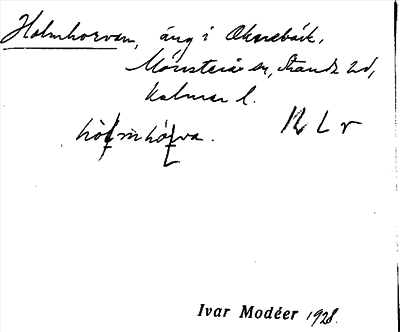 Holmhorvan, äng i Oknebäck,
Mönsterås sn, Stranda hd,
Kalmar l.
hòḷmhórva.
Ivar Modéer 1928.